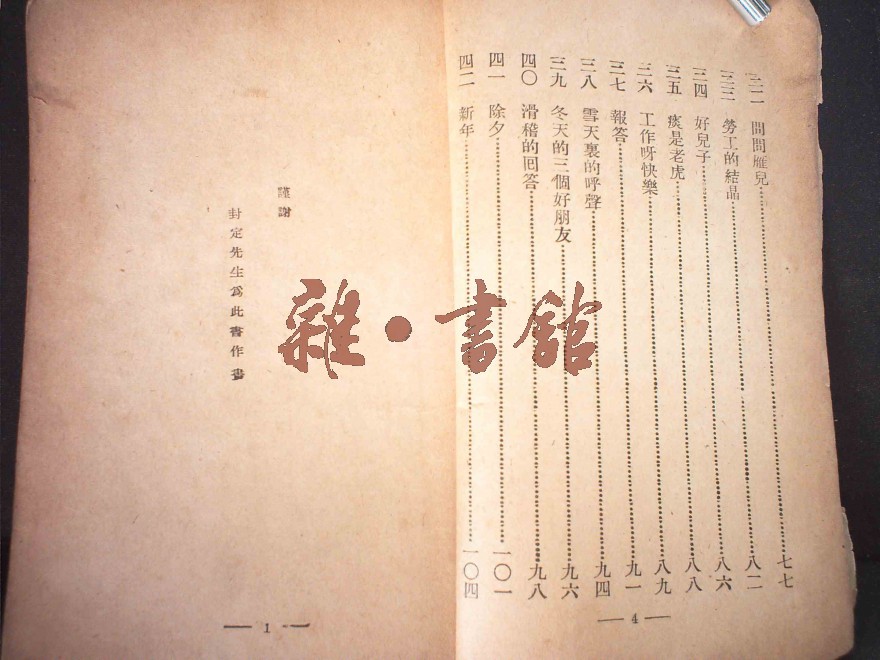 三二 問問雁兒……七七
三三 勞工的結晶……八二
三四 好兒子……八六
三五 痰是老虎……八八
三六 工作呀快樂……八九
三七 報答……九一
三八 雪天裏的呼聲……九四
三九 冬天的三個好朋友……九六
四〇 滑稽的回答……九八
四一 除夕……一〇一
四二 新年……一〇四
— 4 —
謹謝
封定先生爲此書作畫
— 1 —
雜•書館